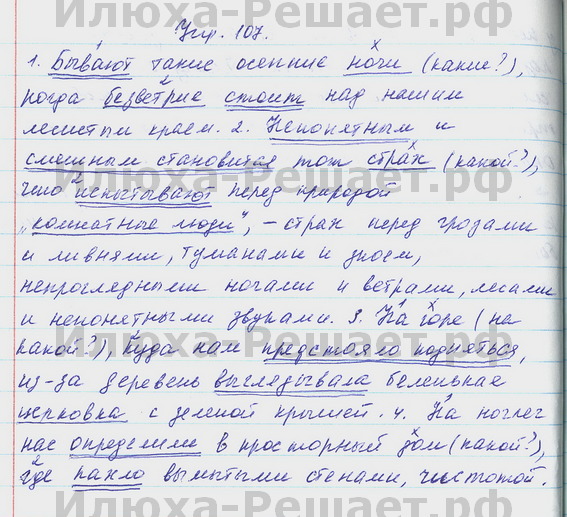 Илюха-Решает.рф
Упр. 107.
1. Бывают такие осенние ночи (какие?),
когда безветрие стоит над нашим
лесистым краем. 2. Непонятным и
смешным становится тот страх (какой?),
что испытывают перед природой
„комнатные люди", – страх перед грозами
и ливнями, туманами и зноем,
непроглядными ночами и ветрами, лесами
и непонятными звуками. 3. На горе (на
какой?), куда нам предстояло подняться,
из-за деревень выглядывала беленькая
церковка с зеленой крышей. 4. На ночлег
нас определили в просторный дом (какой?),
где пахло вымытыми стенами, чистотой.
Илюха-Решает.рф